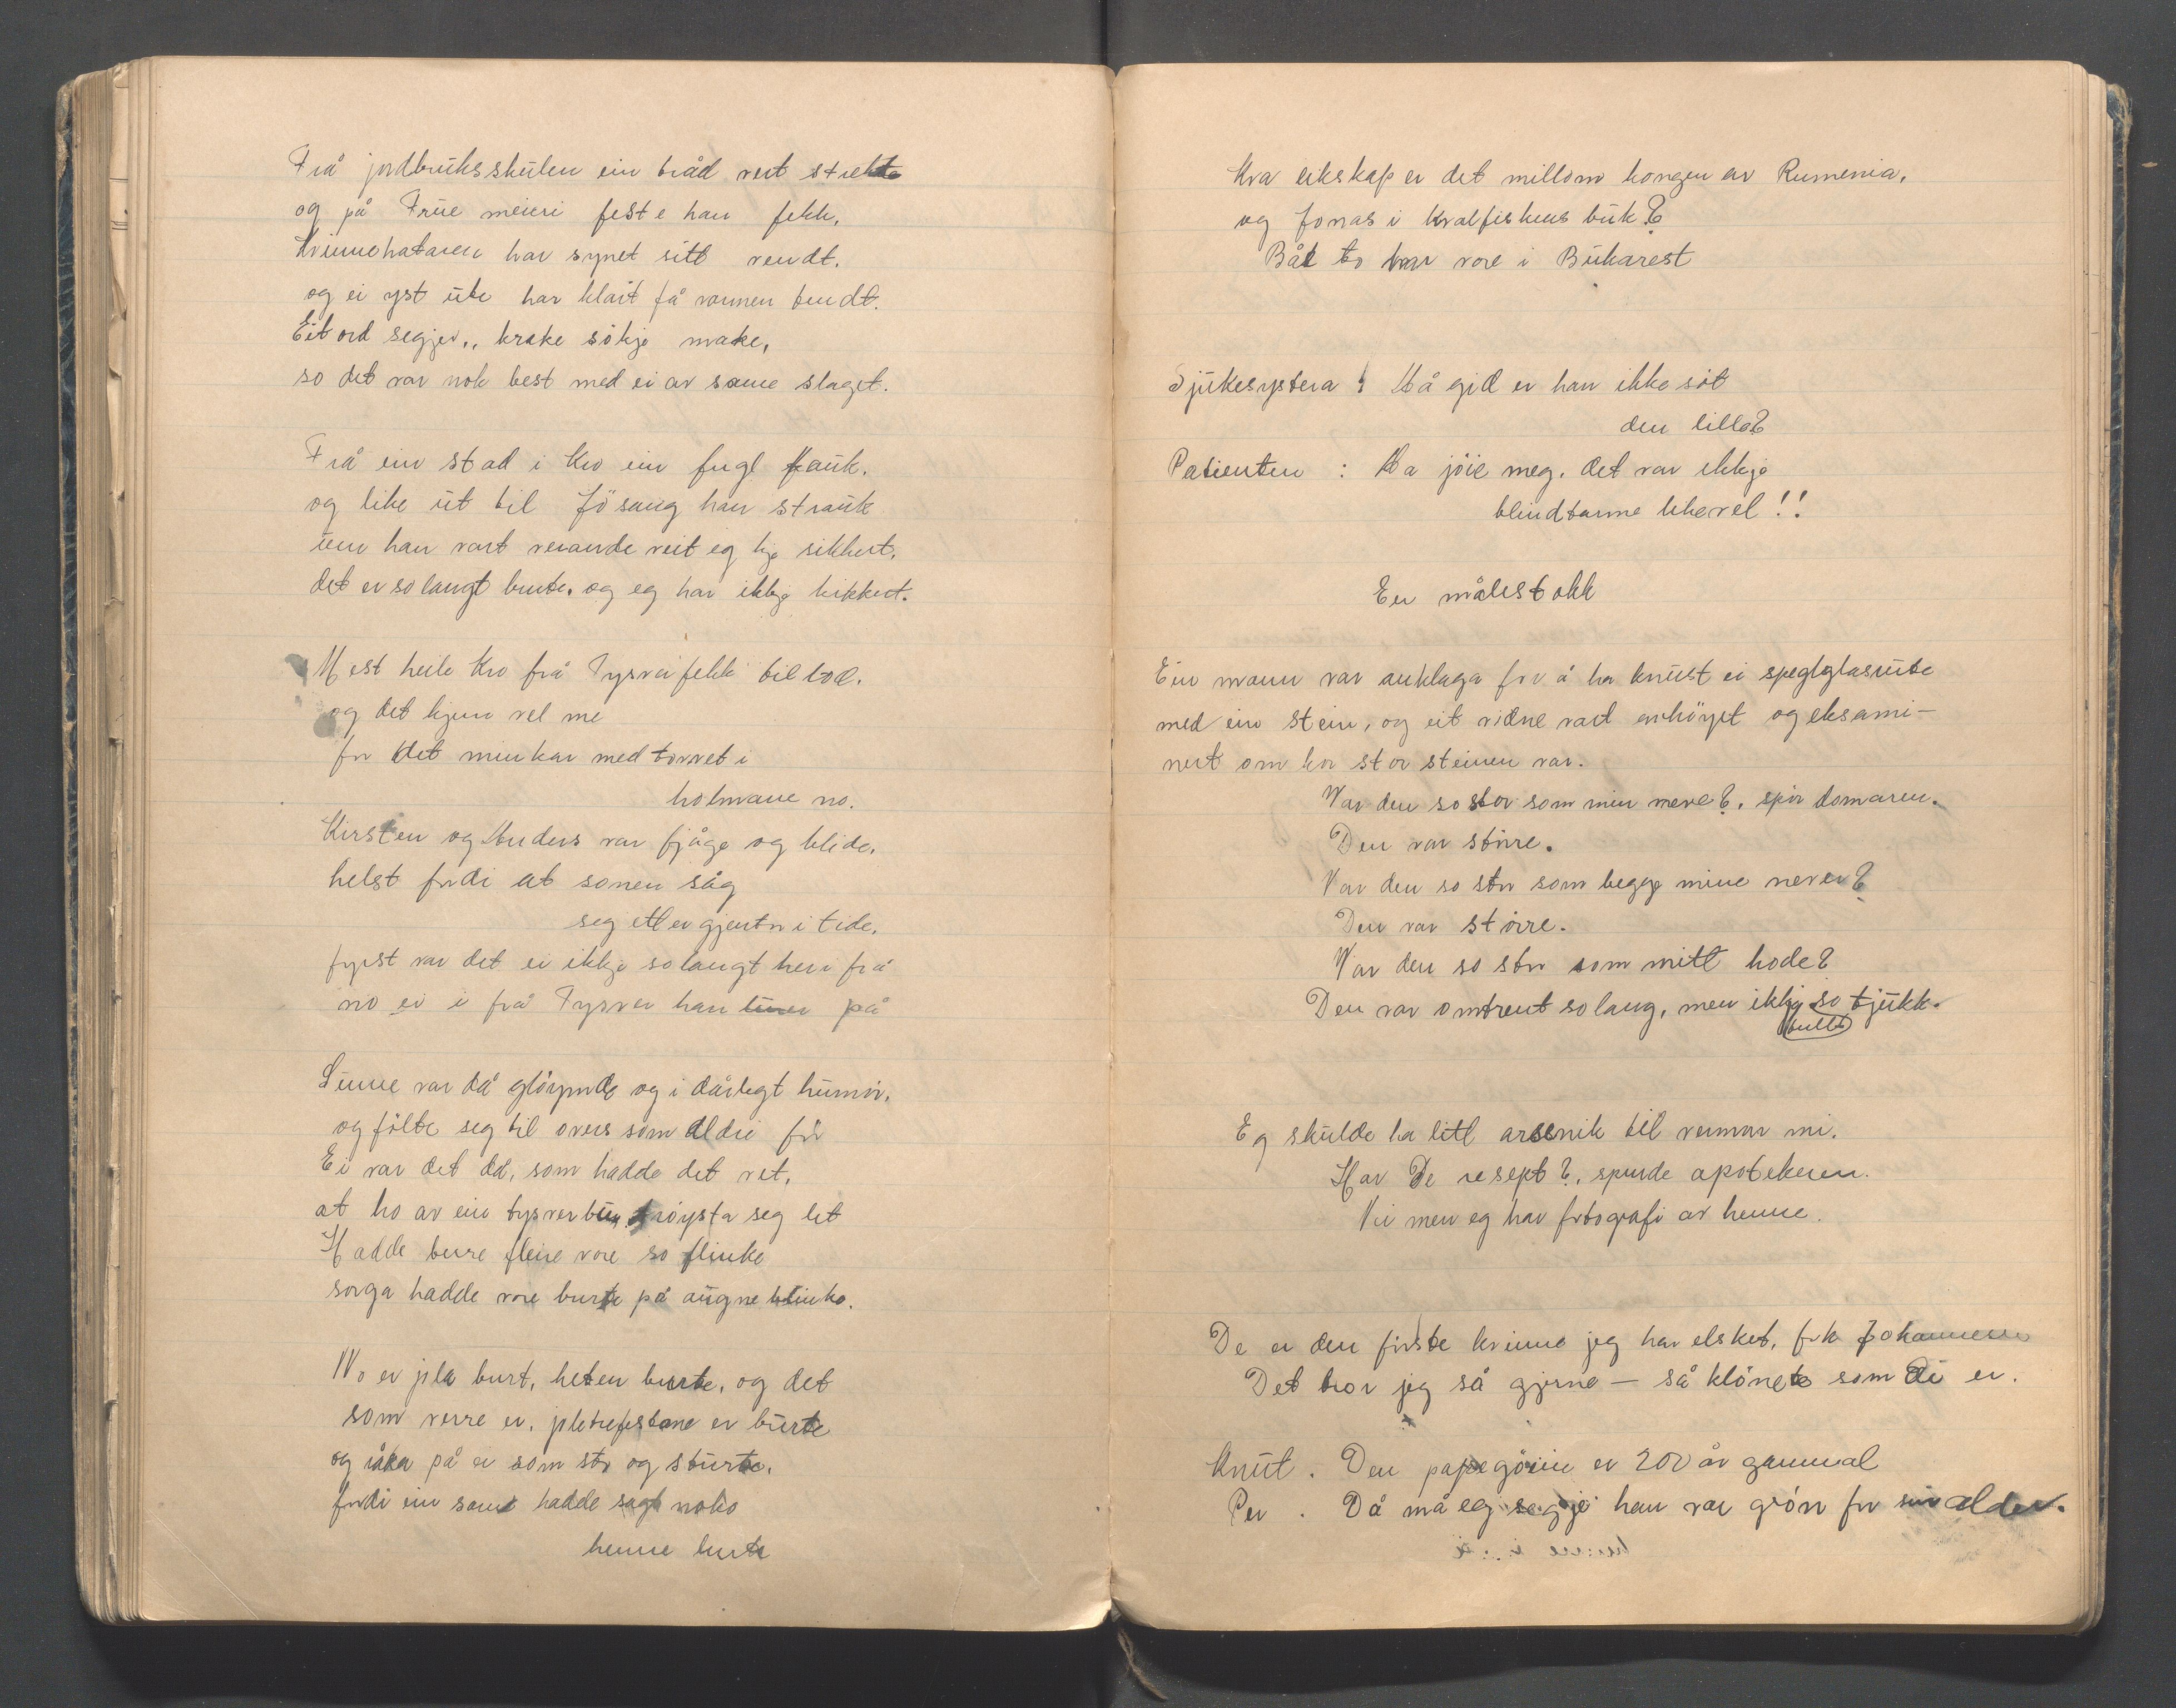 Frå jordbruksskulen ein tråd vert strekte
og på Frue meieri feste han fekk,
Kvinnehataren har synet sitt vendt.
og ei yst ute har klart få vannen tendt.
Eit ord segjer,, krake sökje make,
so det var nok best med ei av same slaget.
Frå ein stad i Kro ein fugl fauk.
og like ut til Jösang han strauk
um han vart verande veit eg kje sikkert,
det er so langt burte, og eg har ikkje kikkert.
Mest heile Kro frå Tysver fekk tillod.
og det kjem vel me
for det munkar med torvet i
holmane no.
Kirsten og Anders var fjåge og blide,
helst fordi at sonen såg
seg etter gjenter i tide,
fyrst var det ei ikkje so langt her i frå
no ei i frå Tysver han luer på
Sume var då glöymde og i dårlegt humör,
og fölte seg til overs som aldri för
Ei var det då, som hadde det vet,
at ho av ein tysverbu tröysta seg let
Hadde berre fleire vore so flinke
sorga hadde vore burte på augneblinke.
No er jola burt, heten burte, og det
som verre er, joletrefestane er burte
og råka på ei som sto og sturte,
fordi ein same hadde sagt noko
henne burte
Kva likskap er det millom kongen av Rumenia,
og Jonas i kvalfiskens buk?
Båe to har vore i Bukarest
Sjukesystera : Å gid er han ikke söt
den lille?
Patienten : Ha jöie meg, det var ikkje
blindtarme likevel!!
En målestokk
Ein mann var anklaga for å ha knust ei speglglasrute
med ein stein, og eit vidne vart avhöyrt og eksami-
nert om kor stor steinen var.
Var den so stor som min neve?, spör domaren.
Den var större.
Var den so stor som begge mine never?
Den var större.
Var den so stor som mitt hode?
Den var omtrent so lang, men ikkje so tjukk.
Eg skulde ha litt arsenik til vermor mi.
Har De resept?, spurde apotekeren.
Nei men eg har fotografi av henne.
De er den förste kvinne jeg har elsket, frk Johannesen
Det tror jeg så gjerne — så klönete som Di er.
Knut. Den papegöien er 200 år gammal
Per. Då må eg segje han var grön for sin alder.